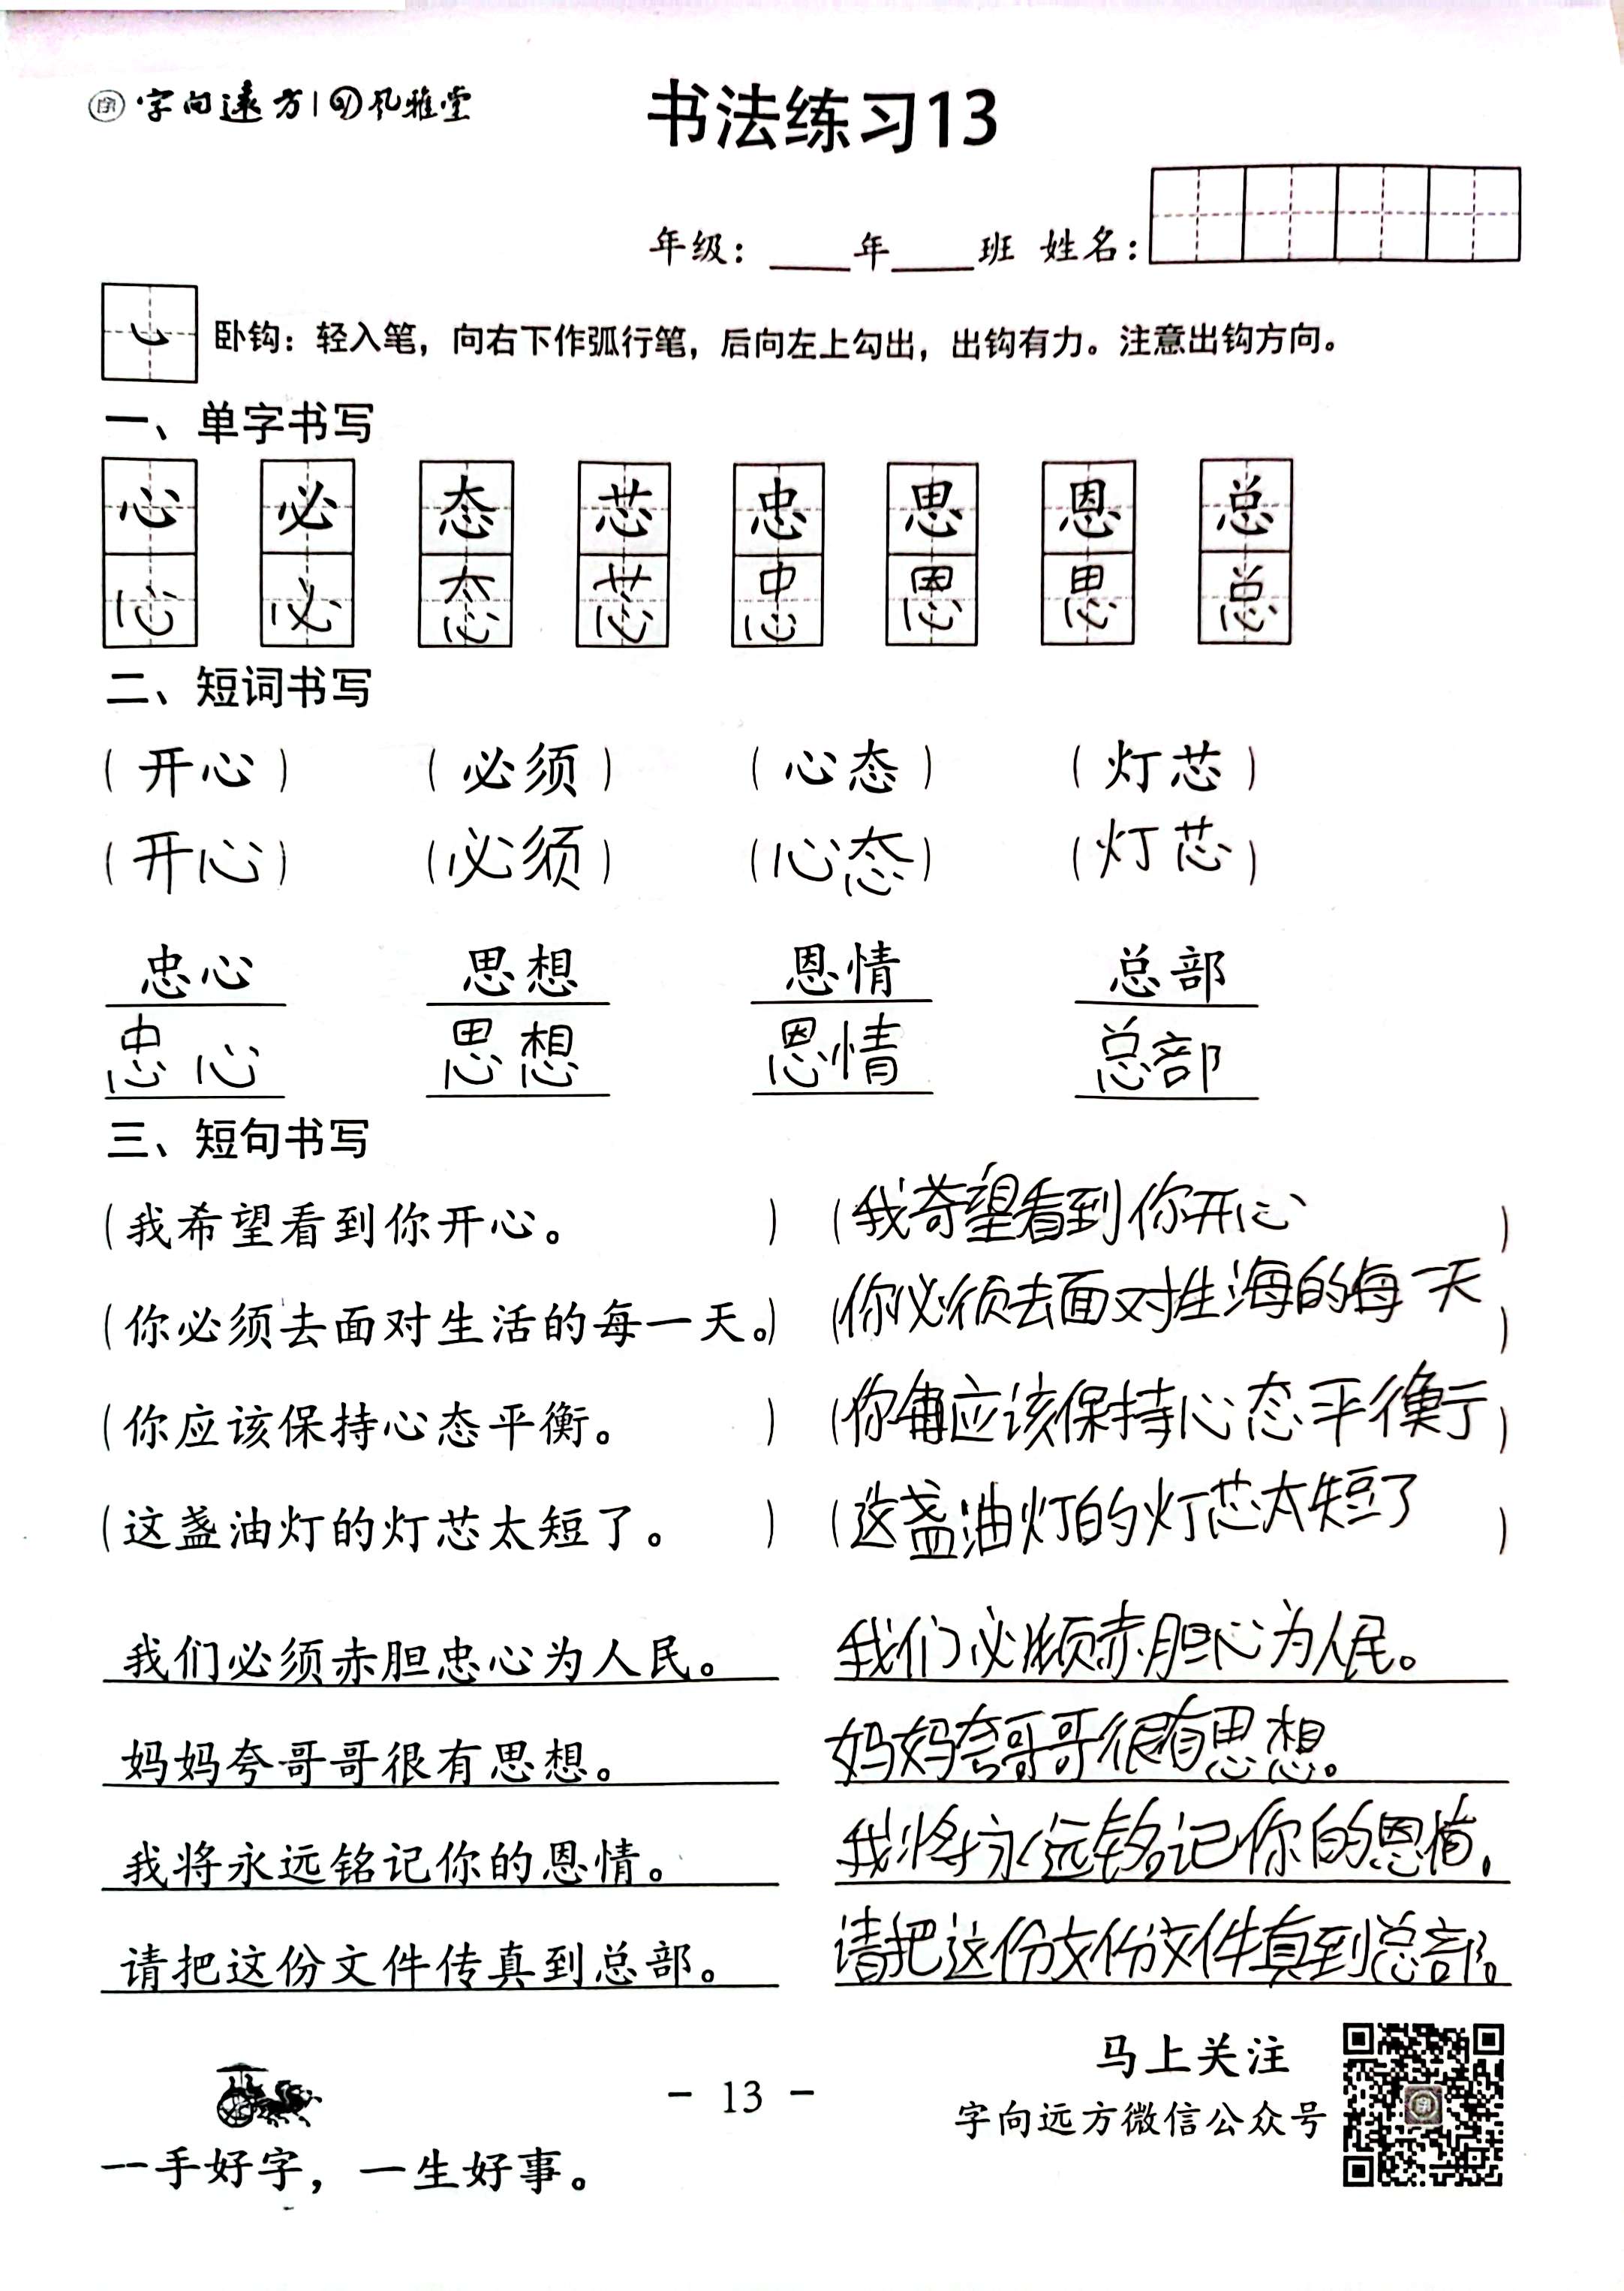 字 字向遠方 | 风雅堂
书法练习13
年级：____年____班 姓名：
卧钩：轻入笔，向右下作弧行笔，后向左上勾出，出钩有力。注意出钩方向。
一、单字书写
心 必 态 芯 忠 思 恩 总
心 必 态 芯 忠 恩 思 总
二、短词书写
（开心） （必须） （心态） （灯芯）
（开心） （必须） （心态） （灯芯）
忠心 思想 恩情 总部
忠心 思想 恩情 总部
三、短句书写
（我希望看到你开心。） （我希望看到你开心）
（你必须去面对生活的每一天。） （你必须去面对生海的每一天）
（你应该保持心态平衡。） （你应该保持心态平衡）
（这盏油灯的灯芯太短了。） （这盏油灯的灯芯太短了）
我们必须赤胆忠心为人民。 我们必须赤胆心为人民。
妈妈夸哥哥很有思想。 妈妈夸哥哥很有思想。
我将永远铭记你的恩情。 我将永远铭记你的恩情。
请把这份文件传真到总部。 请把这份文份文件真到总部。
马上关注
字向远方微信公众号
- 13 -
一手好字，一生好事。